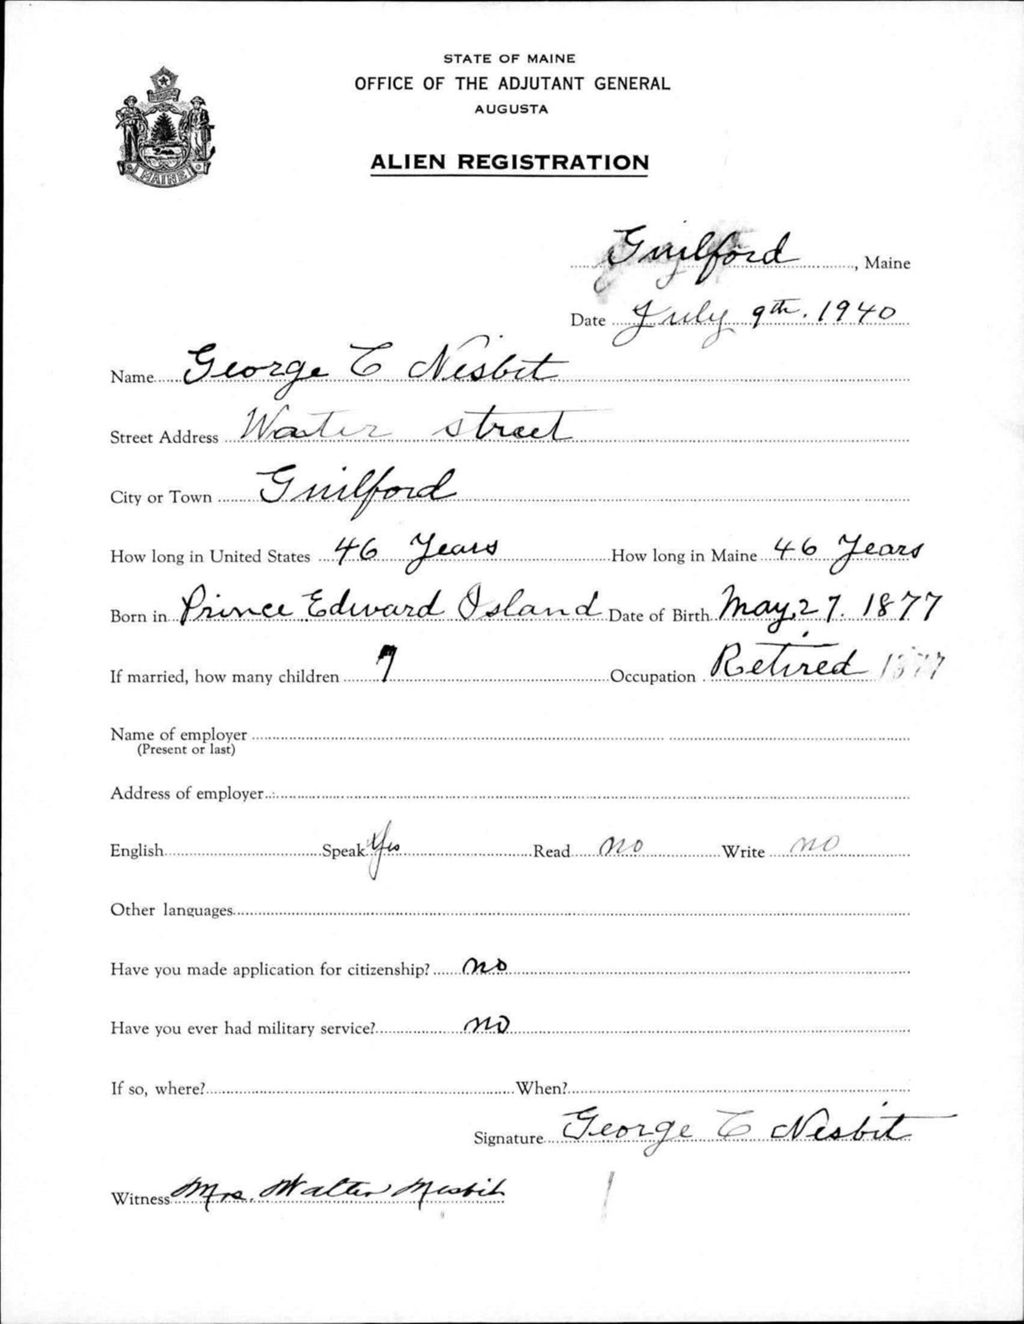 STATE OF MAINE
OFFICE OF THE ADJUTANT GENERAL
AUGUSTA
ALIEN REGISTRATION
MAINE
Guilford, Maine
Date July 9th. 1940
Name George C Nesbit
Street Address Water street
City or Town Guilford
How long in United States 46 Years How long in Maine 46 Years
Born in Prince Edward Island Date of Birth May 27. 1877
If married, how many children 7 Occupation Retired 1877
Name of employer
(Present or last)
Address of employer
English Speak Yes Read no Write no
Other languages
Have you made application for citizenship? no
Have you ever had military service? no
If so, where? When?
Signature George C Nesbit
Witness Mrs. Walter Nesbit